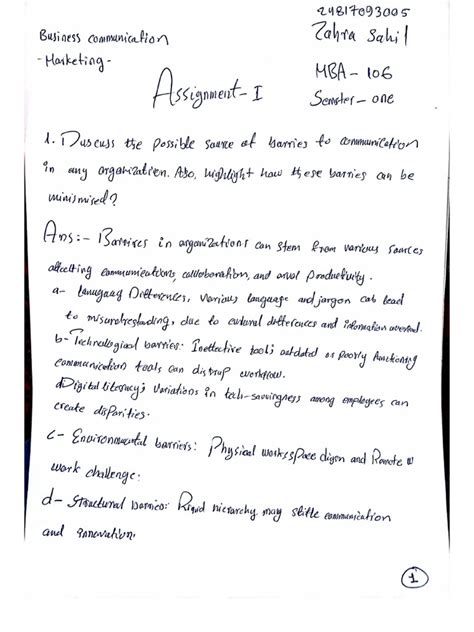 24817093005
Business communication
Zahra Sahil
- Marketing -
MBA - 106
Assignment - I
Semster - one
1. Duscuss the possible source of barries to communication
in any organization. Also, highlight how these barries can be
minimised?
Ans:- Barrires in organizations can stem from various sources
affecting communications, colloboration, and Productivity.
a- Differences, Various language and jargon cab lead
to due to cultural differences and information
b- Technological barries: Ineffective tools, outdated as poorly functioning
communication tools can distrup workflow.
Digital literacy; Variations in tech-savvingness among employees can
create disparities.
c- Environmental barriers: Physical worksspace and Remote
work challenge.
d- Structural barries: Rigid hierarchy may stifle communication
and innovation.
1